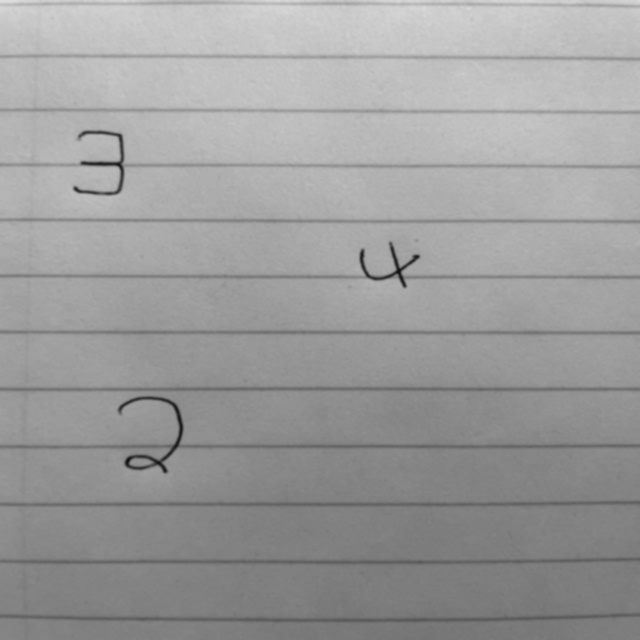 3
4
2